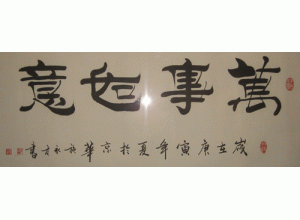 萬事如意
歲在庚寅年夏於京華
書